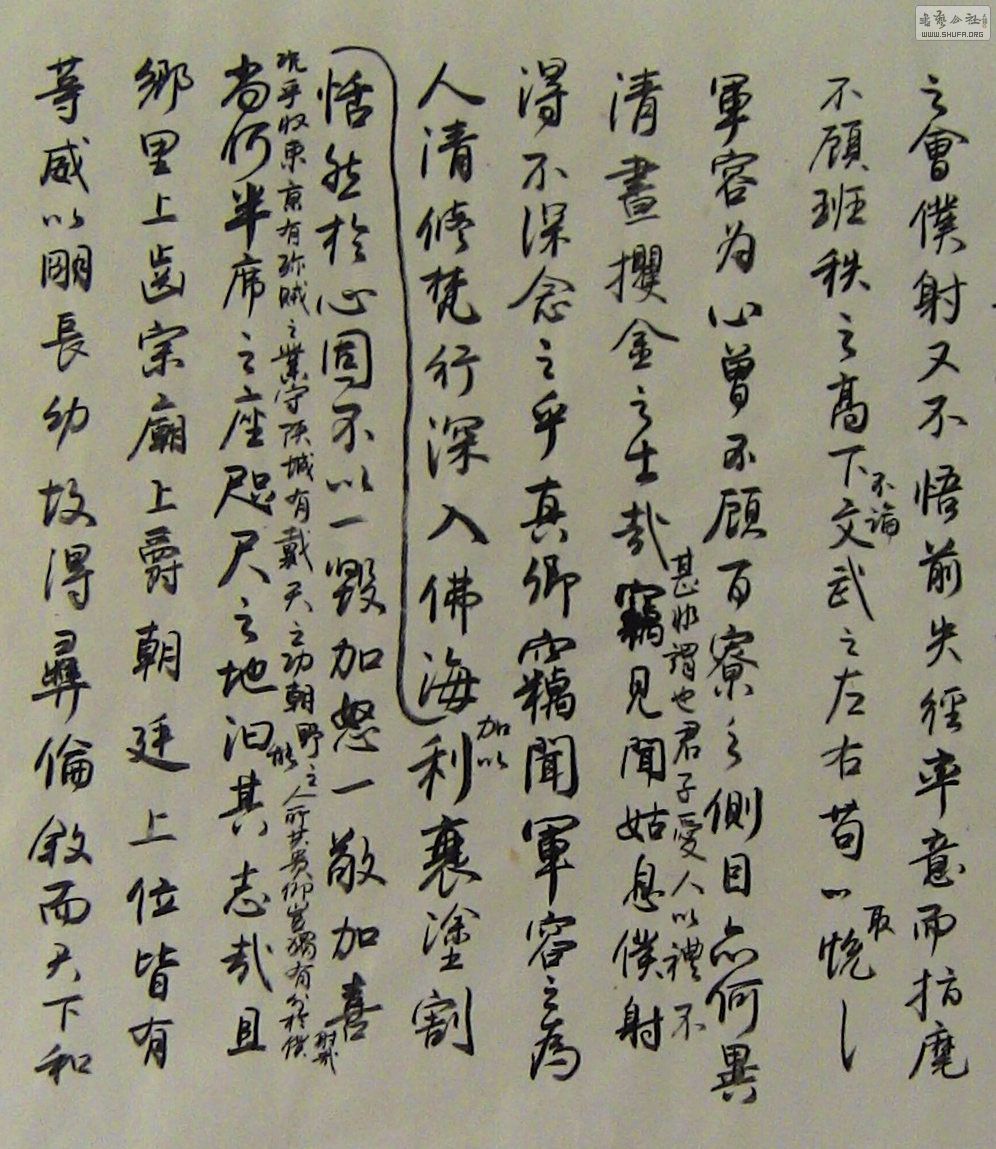 之會僕射又不悟前失徑率意而指麾
不顧班秩之高下不論文武之左右苟以取悅
軍容為心曾不顧百寮之側目亦何異
清晝攫金之士哉甚非謂也君子愛人以禮不
竊見聞姑息僕射
得不深念之乎真卿竊聞軍容之為
人清修梵行深入佛海
況乎收東京有殄賊之業守陝城有戴天之功朝野之人所共貴仰豈獨有分於僕射哉
加以利衰塗割
恬然於心固不以一毀加怒一敬加喜
尚何半席之座咫尺之地能汩其志哉且
鄉里上齒宗廟上爵朝廷上位皆有
等威以明長幼故得彝倫敘而天下和
書藝公社
WWW.SHUFA.ORG